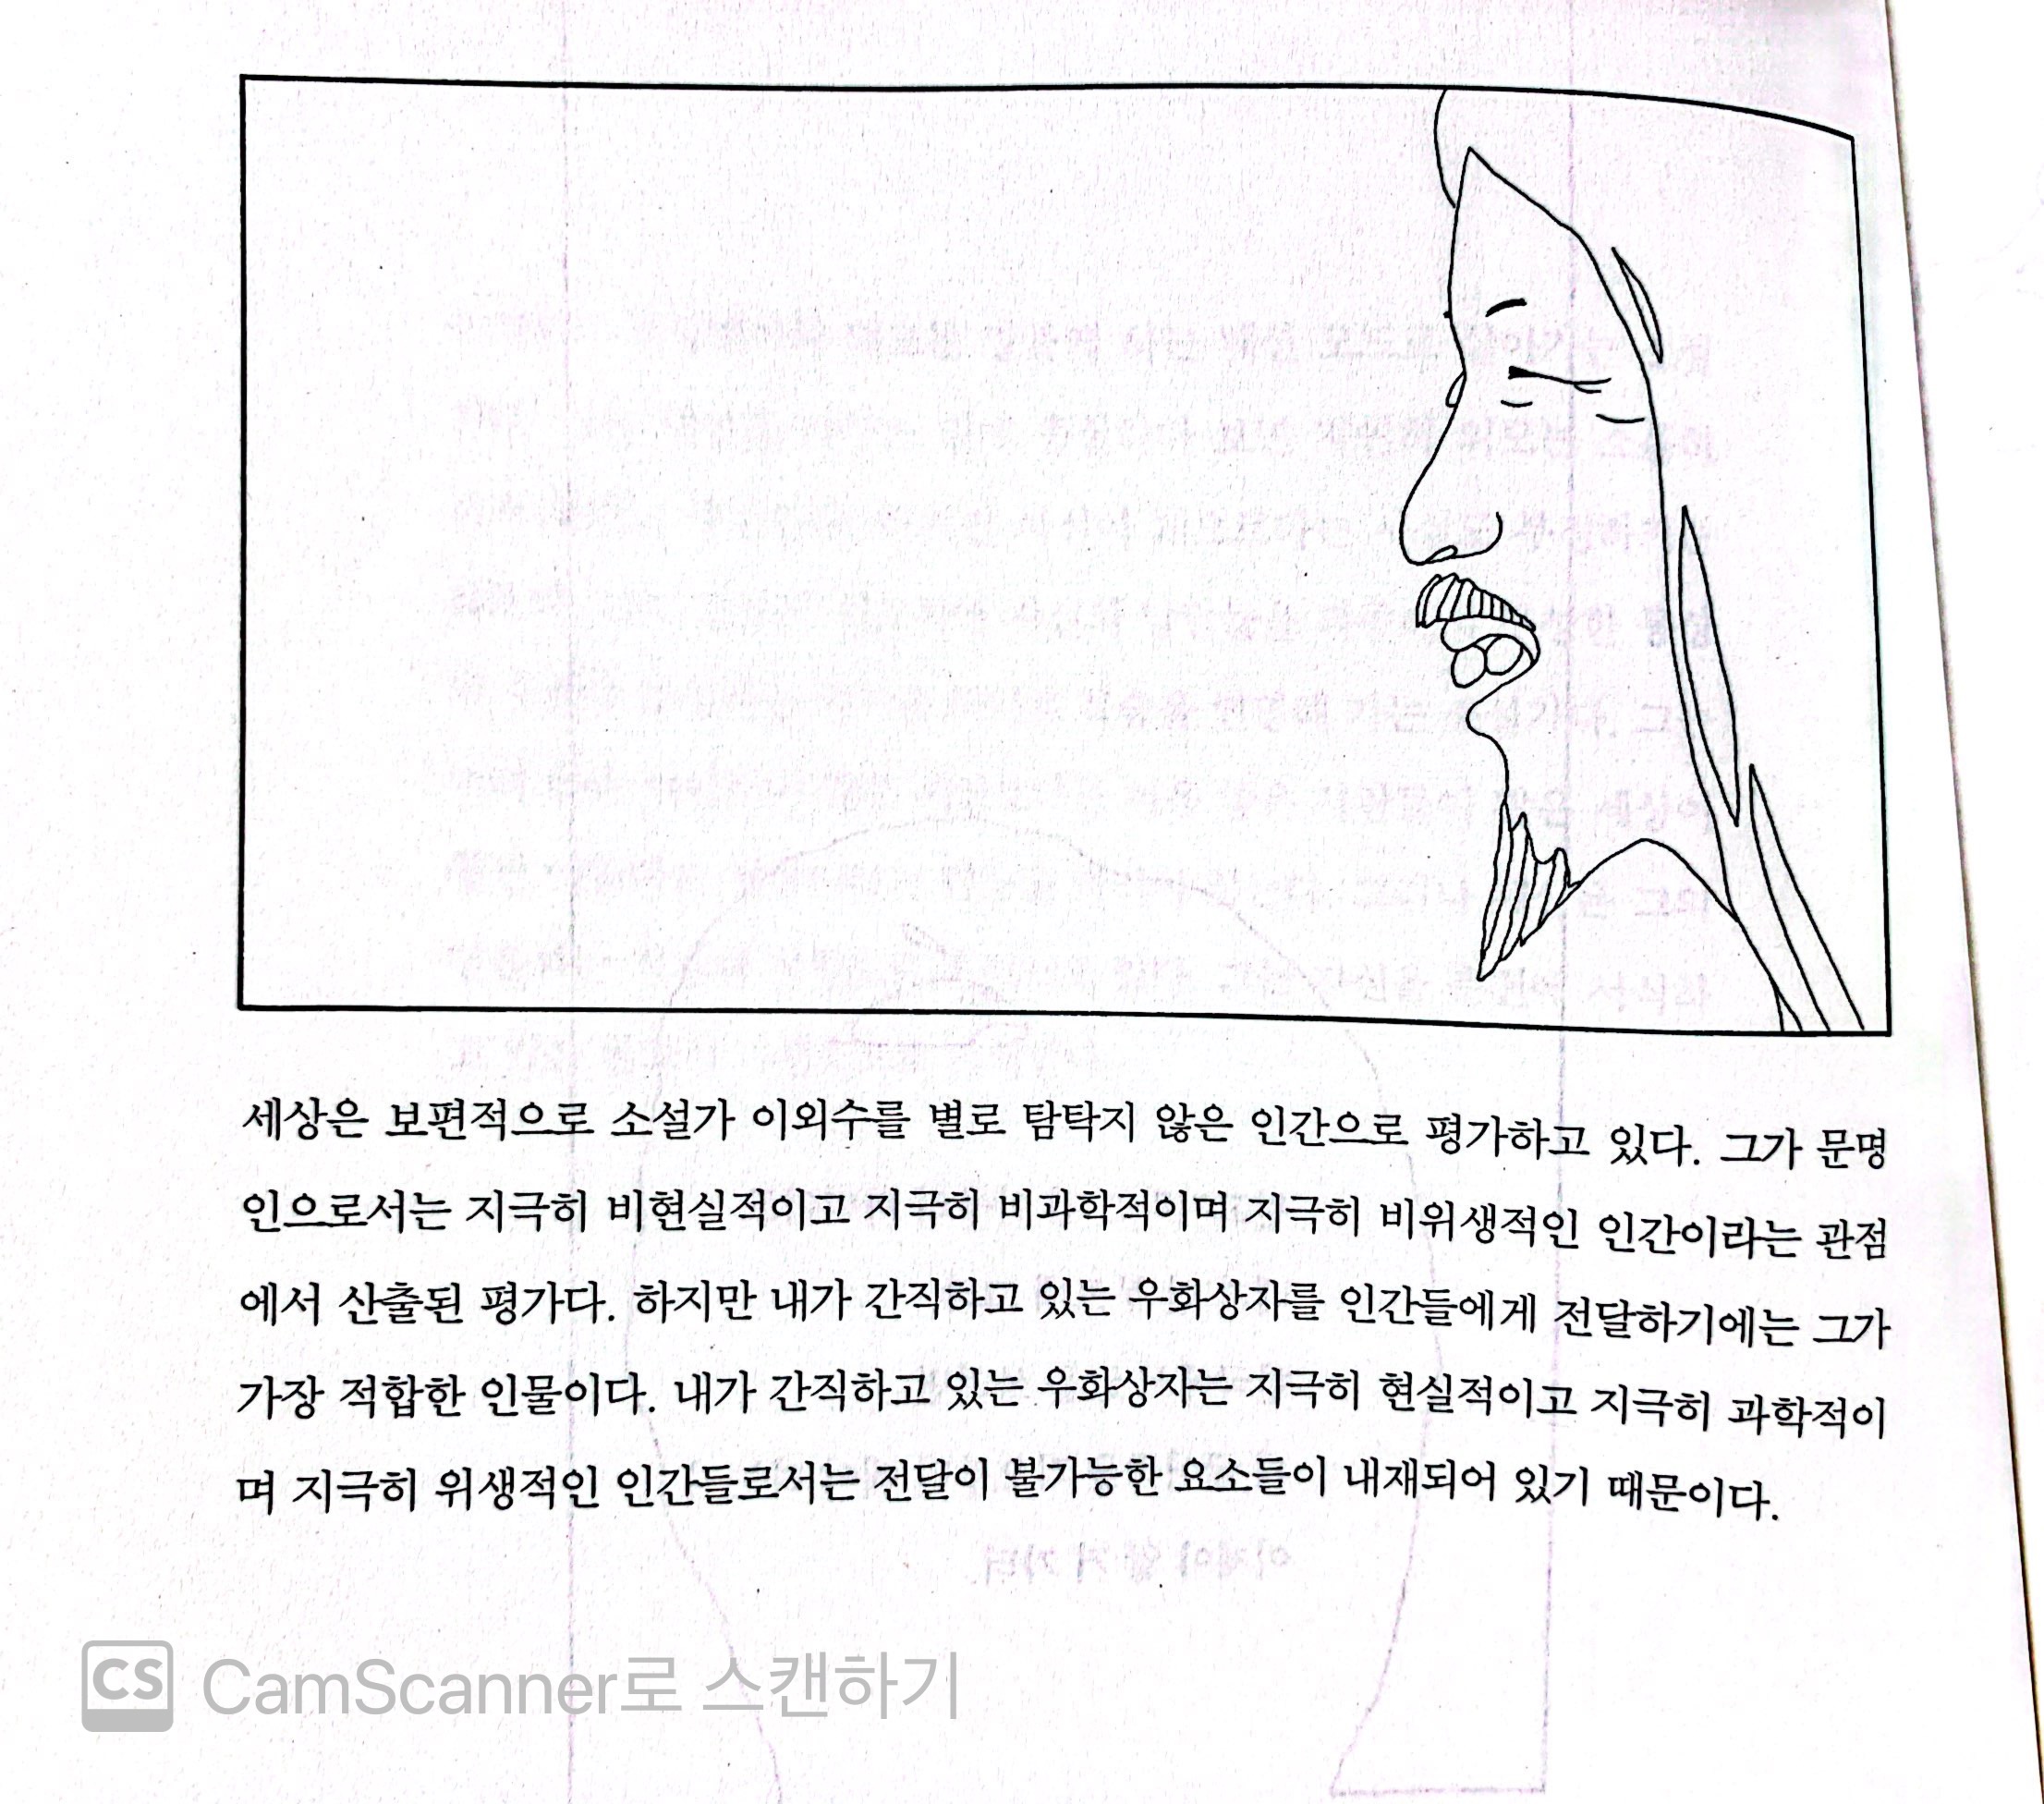 세상은 보편적으로 소설가 이외수를 별로 탐탁지 않은 인간으로 평가하고 있다. 그가 문명
인으로서는 지극히 비현실적이고 지극히 비과학적이며 지극히 비위생적인 인간이라는 관점
에서 산출된 평가다. 하지만 내가 간직하고 있는 우화상자를 인간들에게 전달하기에는 그가
가장 적합한 인물이다. 내가 간직하고 있는 우화상자는 지극히 현실적이고 지극히 과학적이
며 지극히 위생적인 인간들로서는 전달이 불가능한 요소들이 내재되어 있기 때문이다.
CS CamScanner로 스캔하기